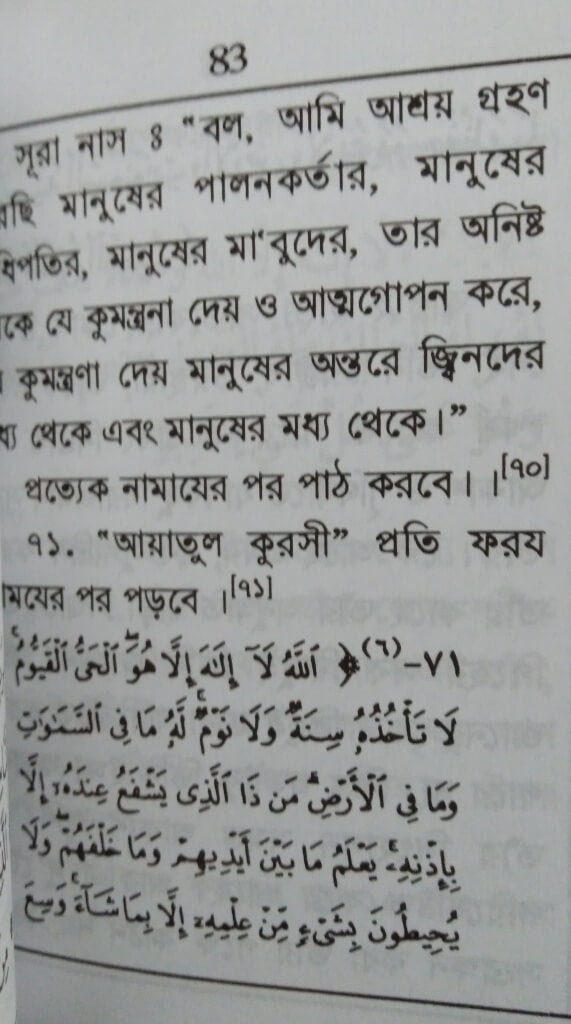 83
সূরা নাস ঃ “বল, আমি আশ্রয় গ্রহণ
রছি মানুষের পালনকর্তার, মানুষের
ধিপতির, মানুষের মা'বুদের, তার অনিষ্ট
কে যে কুমন্ত্রনা দেয় ও আত্মগোপন করে,
কুমন্ত্রণা দেয় মানুষের অন্তরে জ্বিনদের
ধ্য থেকে এবং মানুষের মধ্য থেকে।”
প্রত্যেক নামাযের পর পাঠ করবে। ।[৭০]
৭১. “আয়াতুল কুরসী” প্রতি ফরয
মাযের পর পড়বে ।[৭১]
٧١-(٦) ﴿ ٱللَّهُ لَآ إِلَٰهَ إِلَّا هُوَ ٱلْحَىُّ ٱلْقَيُّومُ ۚ
لَا تَأْخُذُهُۥ سِنَةٌ وَلَا نَوْمٌ ۚ لَّهُۥ مَا فِى ٱلسَّمَٰوَٰتِ
وَمَا فِى ٱلْأَرْضِ ۗ مَن ذَا ٱلَّذِى يَشْفَعُ عِندَهُۥٓ إِلَّا
بِإِذْنِهِۦ ۚ يَعْلَمُ مَا بَيْنَ أَيْدِيهِمْ وَمَا خَلْفَهُمْ ۖ وَلَا
يُحِيطُونَ بِشَىْءٍ مِّنْ عِلْمِهِۦٓ إِلَّا بِمَا شَآءَ ۚ وَسِعَ